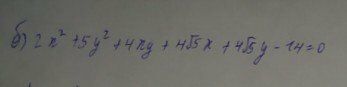 б) 2x² + 5y² + 4xy + 4√5x + 4√5y - 14 = 0